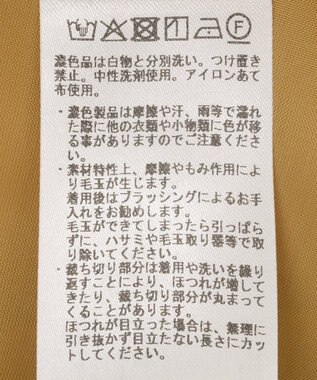 濃色品は白物と分別洗い。つけ置き
禁止。中性洗剤使用。アイロンあて
布使用。
・濃色製品は摩擦や汗、雨等で濡れ
た際に他の衣類や小物類に色が移
る事がありますのでご注意くださ
い。
・素材特性上、摩擦やもみ作用によ
り毛玉が生じます。
着用後はブラッシングによるお手
入れをお勧めします。
毛玉ができてしまったら引っぱら
ずに、ハサミや毛玉取り器等で取
り除いてください。
・裁ち切り部分は着用や洗いを繰り
返すことにより、ほつれが増して
きたり、裁ち切り部分が丸まって
くることがあります。
ほつれが目立った場合は、無理に
引き抜かず目立たない長さにカッ
トしてください。